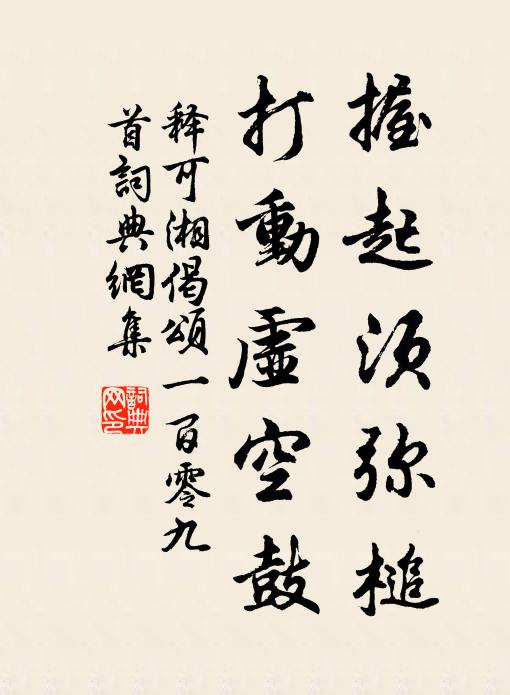 握起须弥槌
打動虛空鼓
释可湘偈頌一百零九
首詞典網集
詞典网印